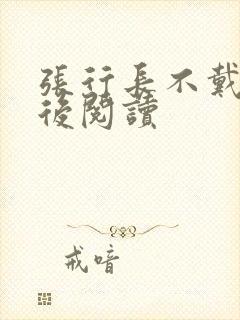 張行長不戴
後閱讀
戒喑